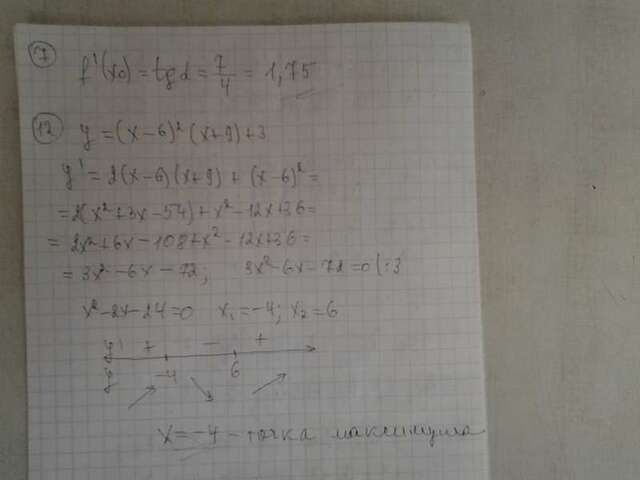 7 f'(x₀) = tg α = 7/4 = 1,75
12 y = (x-6)² (x+9)+3
y' = 2(x-6)(x+9) + (x-6)² =
= 2(x²+3x-54)+x²-12x+36=
= 2x²+6x-108+x²-12x+36=
= 3x²-6x-72; 3x²-6x-72=0 |:3
x²-2x-24=0 x₁=-4; x₂=6
y' + - +
y -4 6
x=-4 - точка максимума